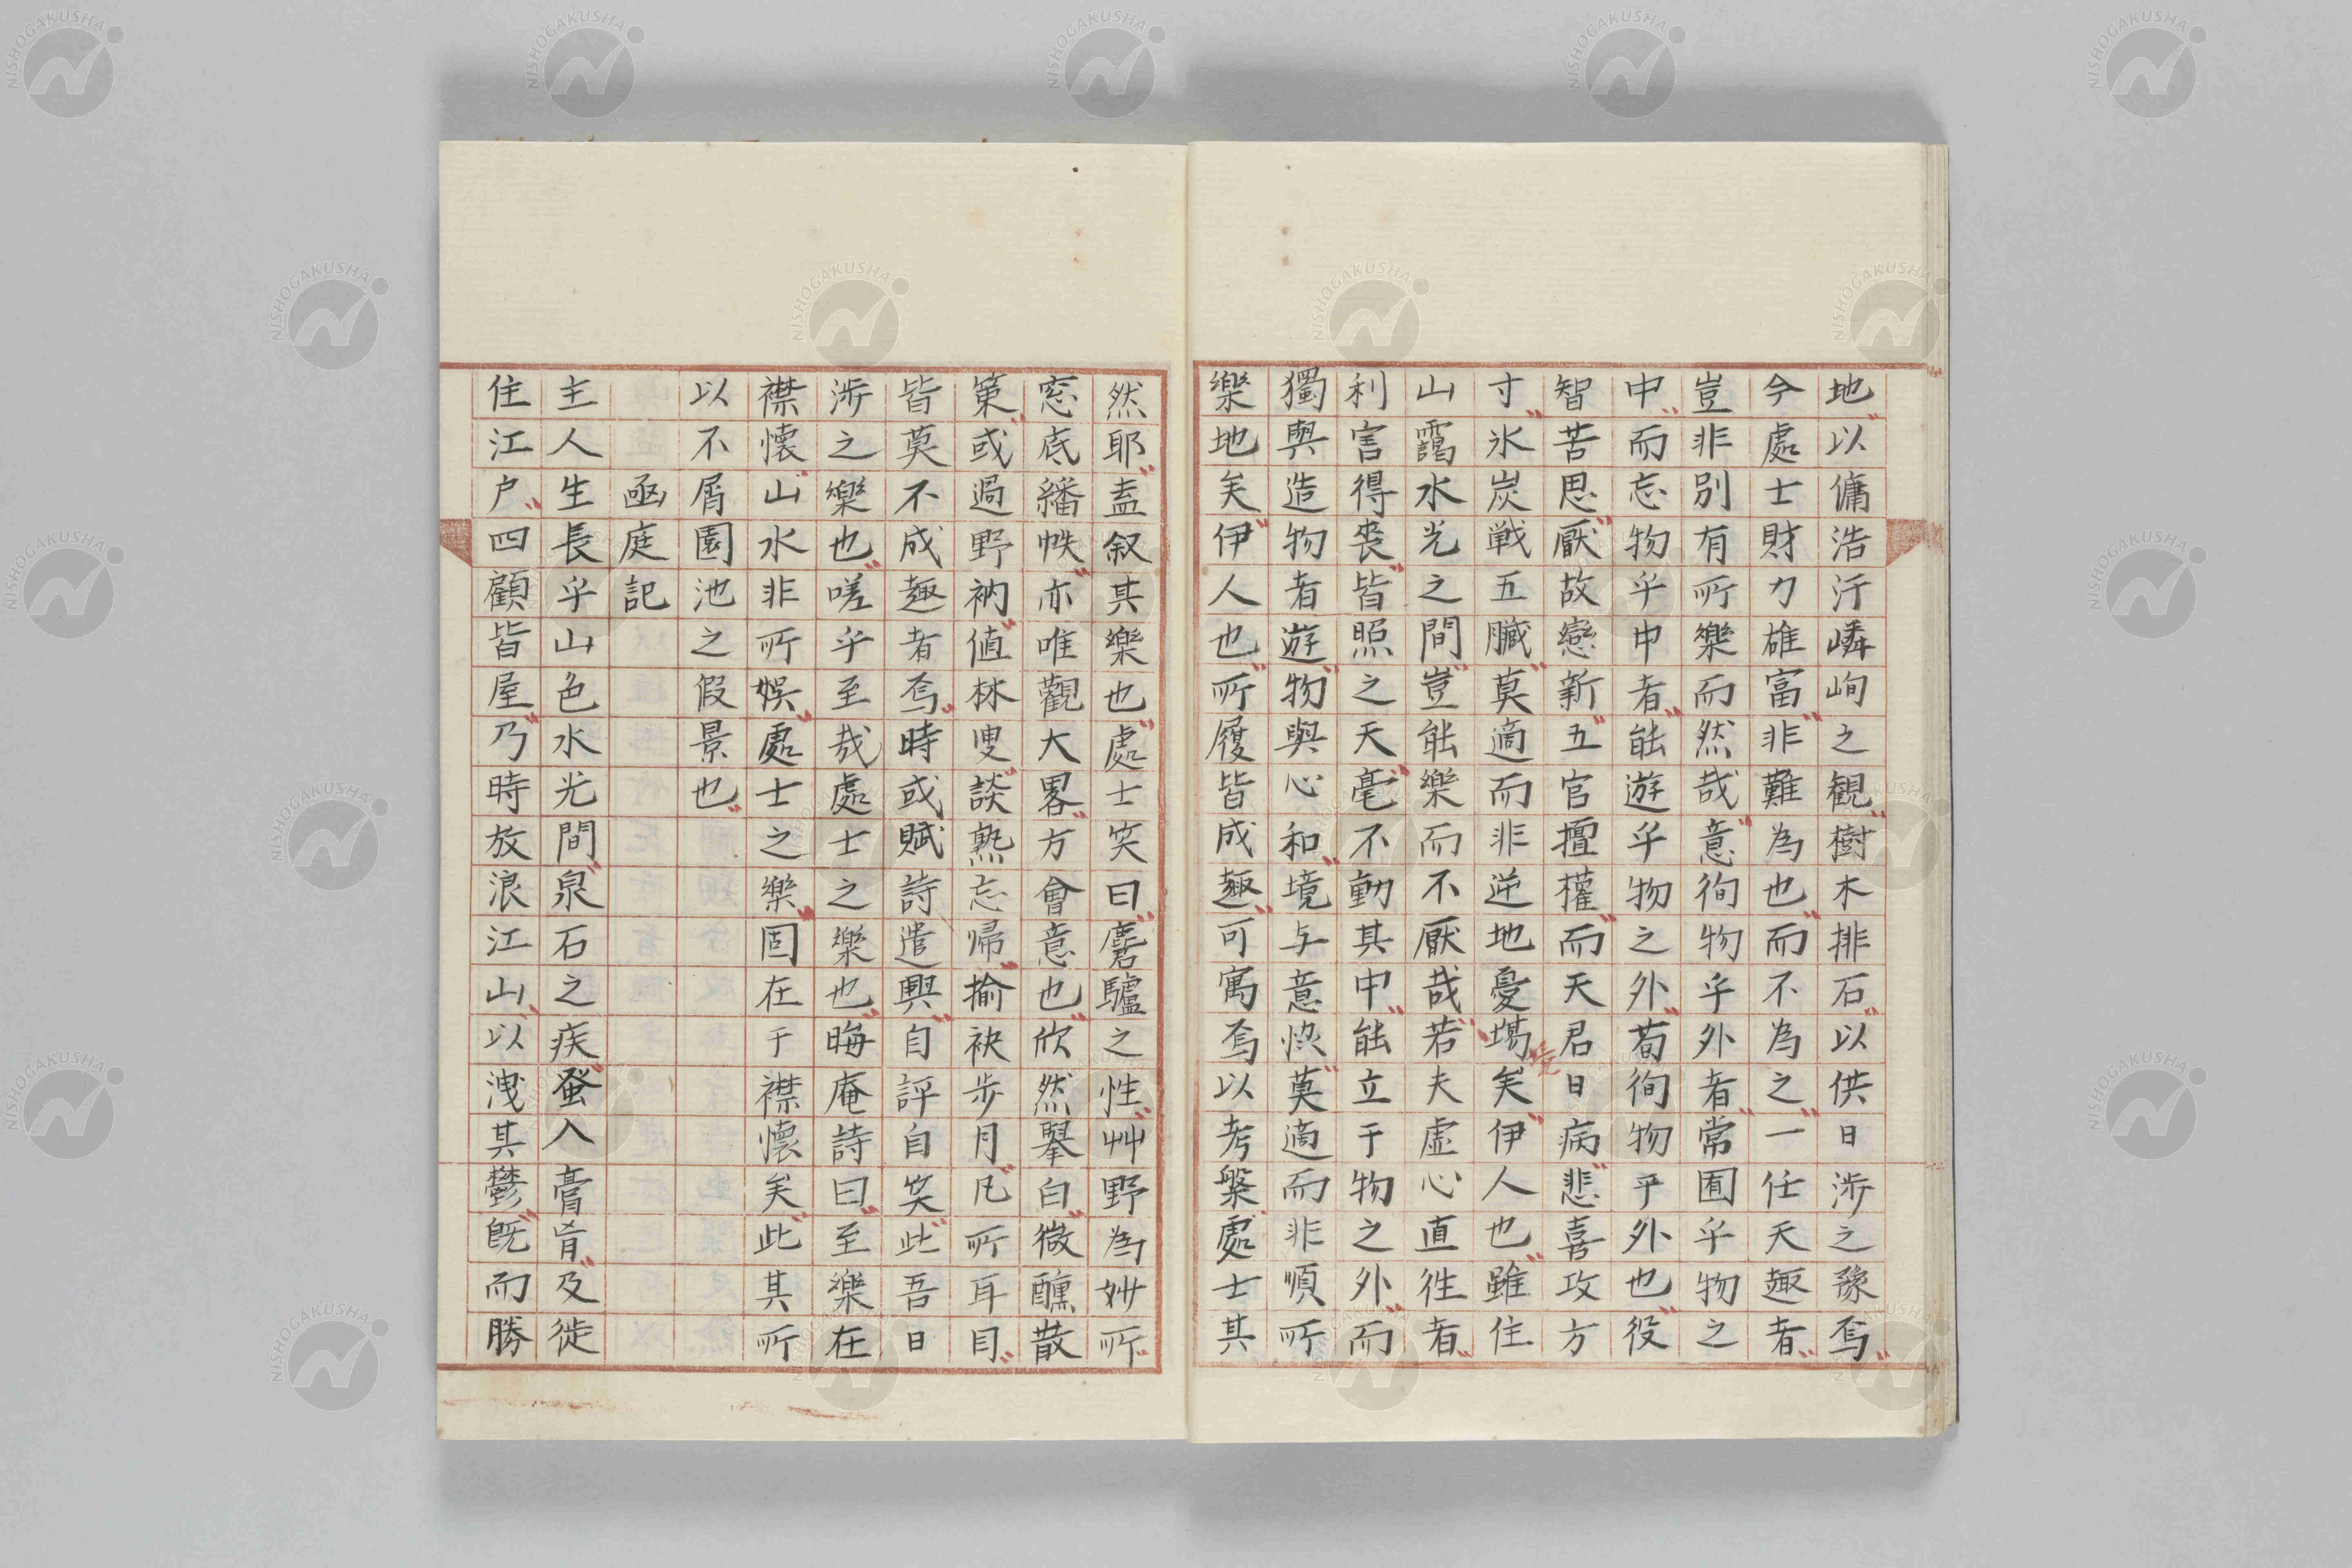 地以傭浩汙嶙峋之観樹木排石以供日渉之豫焉
今處士財力雄富非難為也而不為之一任天趣者
豈非別有所樂而然哉意徇物乎外者常囿乎物之
中而忘物乎中者能遊乎物之外苟徇物乎外也役
智苦思厭故戀新五官擅權而天君日病悲喜攻方
寸氷炭戦五臓莫適而非逆地憂塲矣伊人也雖住
山靄水光之間豈能樂而不厭哉若夫虚心直往者
利害得喪皆照之天毫不動其中能立于物之外而
獨與造物者遊物與心和境与意恢莫適而非順所
樂地矣伊人也所履皆成趣可寓焉以考槃處士其
然耶盍叙其樂也處士笑曰麏驢之性艸野為妙所
窓底繙帙亦唯觀大畧方會意也欣然擧白微醺散
策或過野衲値林叟談熟忘帰揄袂歩月凡所耳目
皆莫不成趣者焉時或賦詩遣興自評自笑此吾日
渉之樂也嗟乎至哉處士之樂也晦庵詩曰至樂在
襟懐山水非所娯處士之樂固在于襟懐矣此其所
以不屑園池之假景也
凾庭記
主人生長乎山色水光間泉石之疾蚤入膏肓及徙
住江戸四顧皆屋乃時放浪江山以洩其鬱既而勝